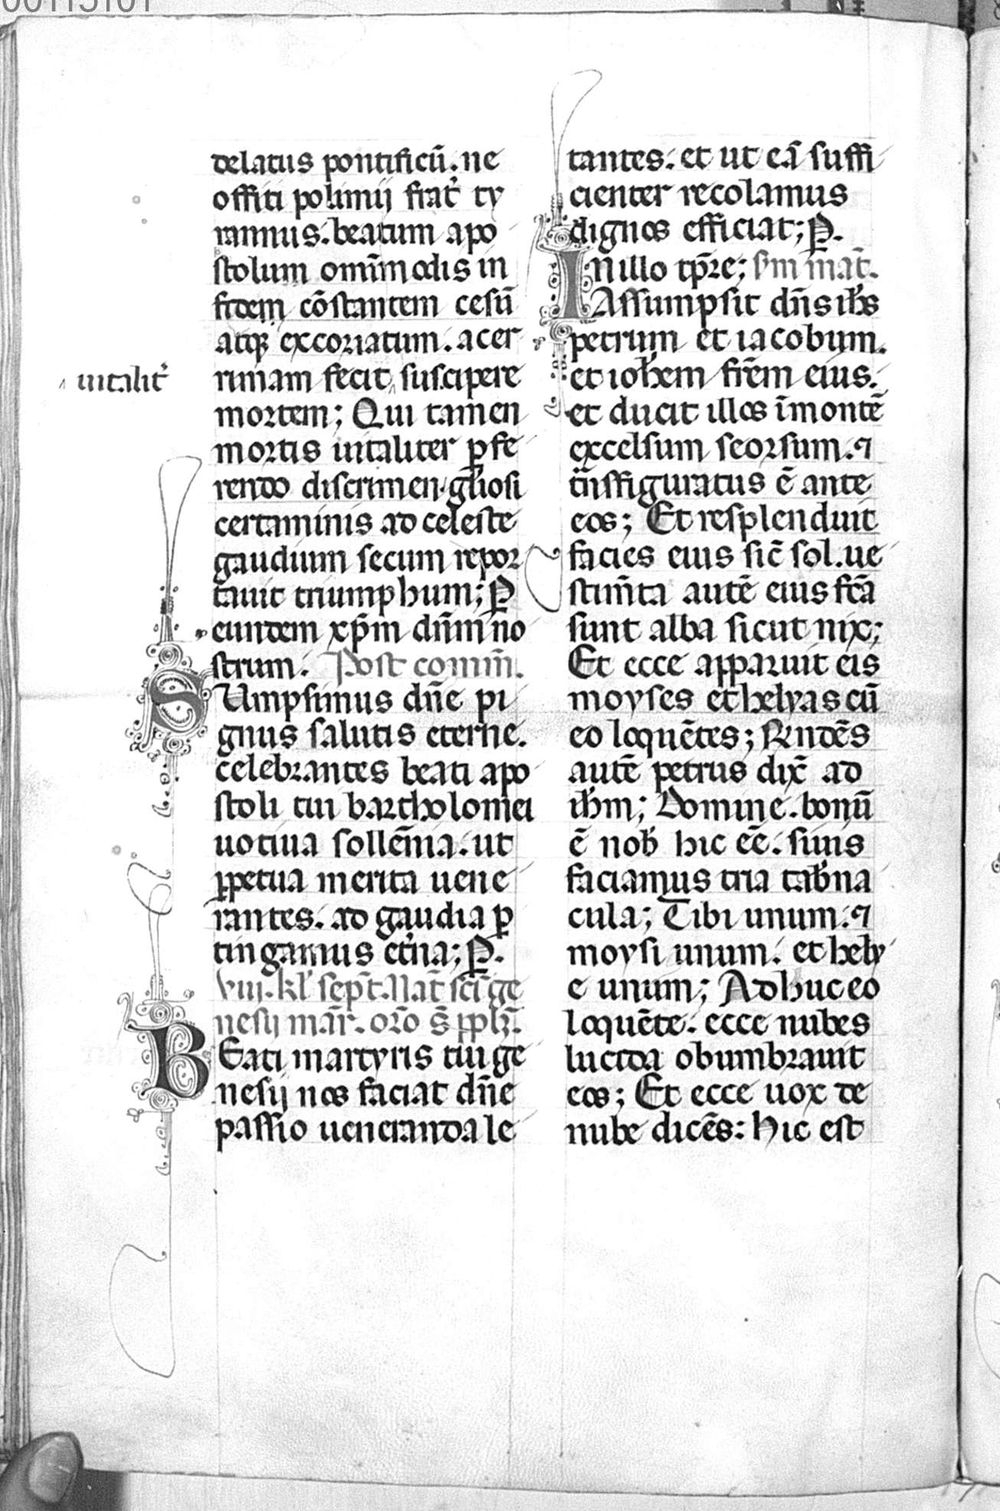 00115101
delatus pontificū. ne
offiti polimij fiat᷑ ty
rannus. beatum apo
stolum omīmodis in
fidem cōstantem cesū
atqꝫ excoriatum. acer
rimam fecit suscipere
uitalit᷑
mortem; Qui tamen
mortis uitaliter ꝑfe
rendo discrimen. gl̄iosi
certaminis ad celeste
gaudium secum repor
tauit triumphum; P̱
eundem xp̄m dn̄m no
strum. Post comm̄.
SUmpsimus dn̄e pi
gnus salutis eterne.
celebrantes beati apo
stoli tui bartholomei
uotiua sollēnia. ut
ꝑpetua merita uene
rantes. ad gaudia ꝑ
tingamus et̄na; P̱.
viii. kl̄ sept̄. Nat̄ sc̄i ge
nesij mār. orō s̄ ppl̄ꝫ.
BEati martyris tui ge
nesij nos faciat dn̄e
passio ueneranda le
tantes. et ut eā suffi
cienter recolamus
dignos efficiat; P̱.
IN illo tp̄re; s̄m mat̄.
Assumpsit dn̄s ih̄s
petrum et iacobum.
et ioh̄em fr̄em eius.
et ducit illos ī montē
excelsum seorsum. ⁊
tn̄sfiguratus ē ante
eos; Et resplenduit
facies eius sic̄ sol. ue
stim̄ta autē eius fc̄a
sunt alba sicut nix;
Et ecce apparuit eis
moyses et helyas cū
eo loquētes; Rn̄dēs
autē petrus dix̄ ad
ih̄m; Domine. bonū
ē nob̄ hic eē. si uis
faciamus tria tab̄na
cula; Tibi unum. ⁊
moysi unum. et hely
e unum; Adhuc eo
loquēte. ecce nubes
lucida obumbrauit
eos; Et ecce uox de
nube dicēs: Hic est